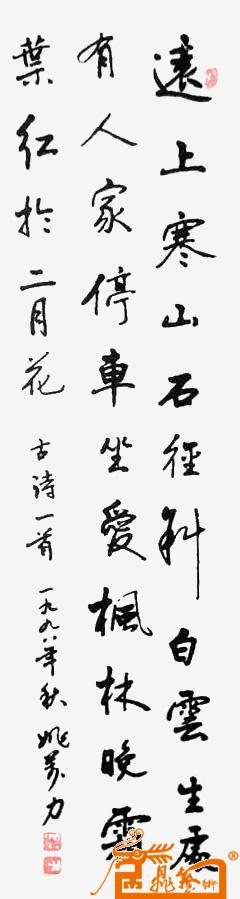 遠上寒山石徑斜白雲生處
有人家停車坐愛楓林晚霜
葉紅於二月花 古詩一首 一九九八年秋 姚力